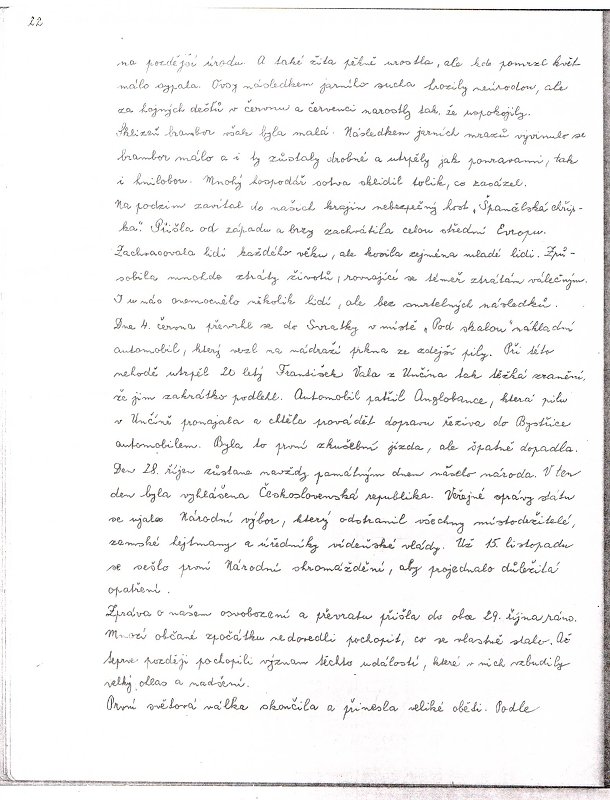 22
na pozdější úrodu. A také žita pěkně vrostla, ale kde pomrzl květ
málo sypala. Ovsy následkem jarního sucha hrozily neúrodou, ale
za hojných dešťů v červnu a červenci narostly tak, že uspokojily.
Sklizeň brambor však byla malá. Následkem jarních mrazů vyvinulo se
brambor málo a i ty zůstaly drobné a utrpěly jak ponravami, tak
i hnilobou. Mnohý hospodář sotva sklidil tolik, co zasázel.
Na podzim zavítal do našich krajin nebezpečný host „Španělská chřip-
ka". Přišla od západu a brzy zachvátila celou střední Evropu.
Zachvacovala lidi každého věku, ale kosila zejména mladé lidi. Způ-
sobila mnoho ztráty životů, rovnající se téměř ztrátám válečným.
I u nás onemocnělo několik lidí, ale bez smrtelných následků.
Dne 4. června převrhl se do Svratky v místě „Pod skalou" nákladní
automobil, který vezl na nádraží prkna ze zdejší pily. Při této
nehodě utrpěl 21 letý František Vala z Unčína tak těžká zranění,
že jim zakrátko podlehl. Automobil patřil Anglobance, která pilu
v Unčíně pronajala a chtěla provádět dopravu řeziva do Bystřice
automobilem. Byla to první zkušební jízda, ale špatně dopadla.
Den 28. říjen zůstane navždy památným dnem našeho národa. V ten
den byla vyhlášena Československá republika. Veřejné správy státu
se ujalo Národní výbor, který odstranil všechny místodržitelé,
zemské hejtmany a úředníky vídeňské vlády. Už 15. listopadu
se sešlo první Národní shromáždění, aby projednalo důležitá
opatření.
Zpráva o našem osvobození a převratu přišla do obce 29. října ráno.
Mnozí občané zpočátku nedovedli pochopit, co se vlastně stalo. Až
teprve později pochopili význam těchto událostí, které v nich vzbudily
velký ohlas a nadšení.
První světová válka skončila a přinesla veliké oběti. Podle